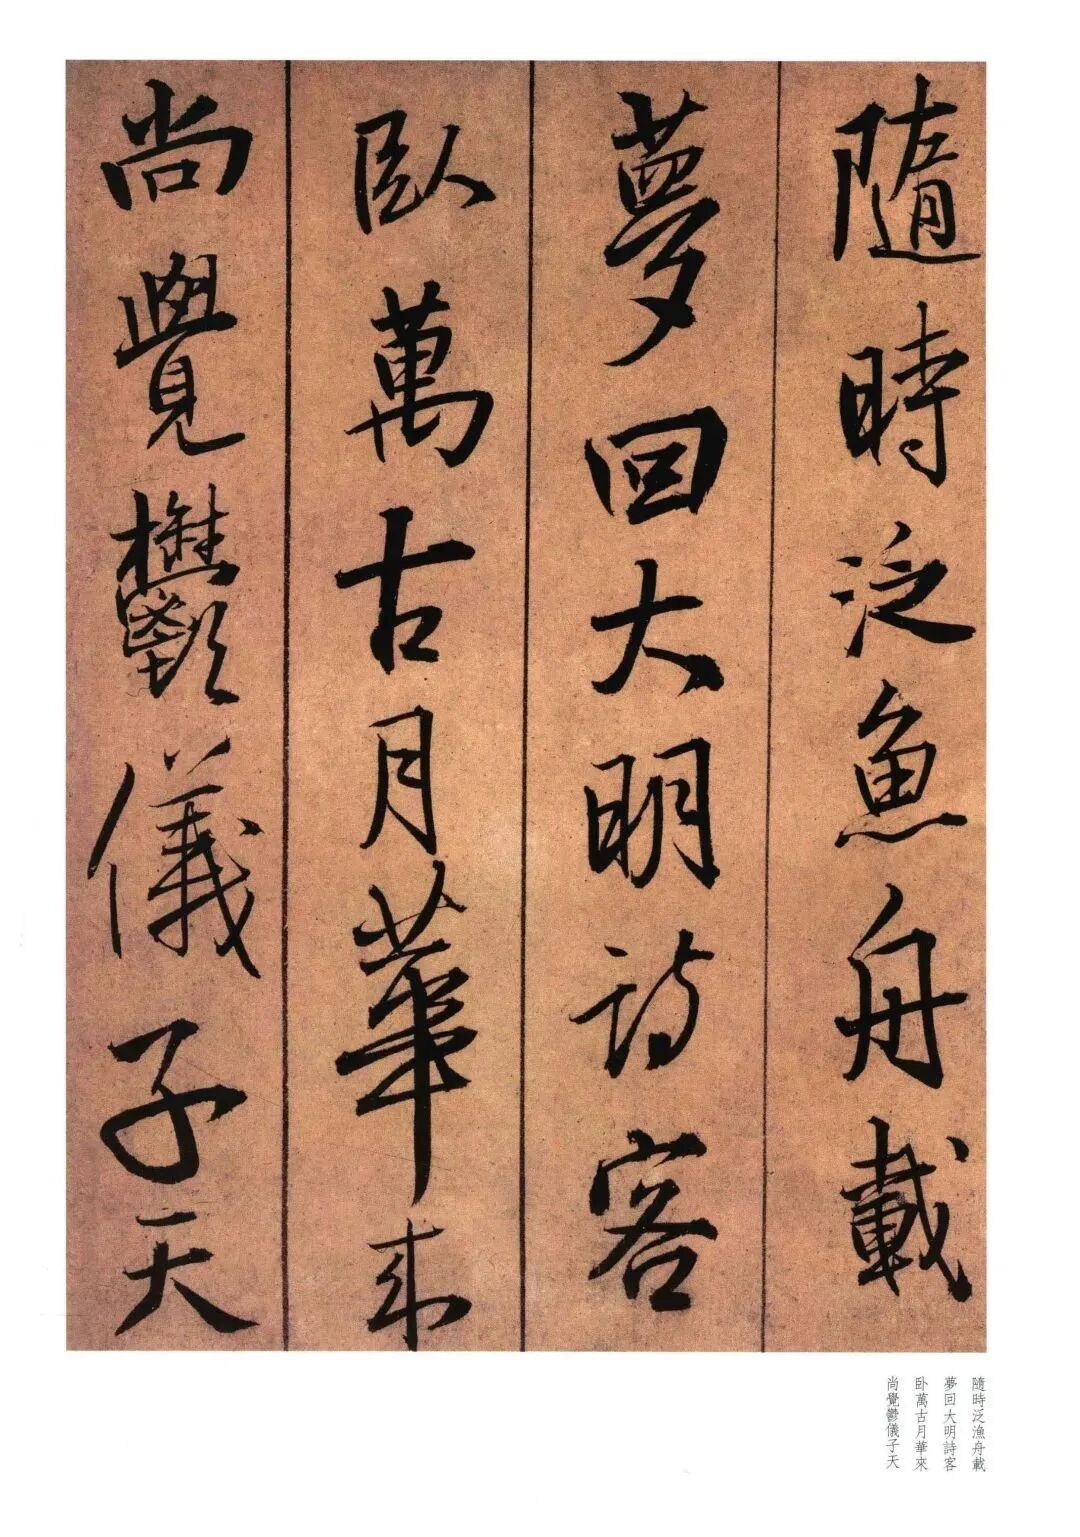 隨時泛魚舟載
夢回大明詩客
臥萬古月華来
尚覺鬱儀子天
隨時泛漁舟載
夢回大明詩客
卧萬古月華來
尚覺鬱儀子天